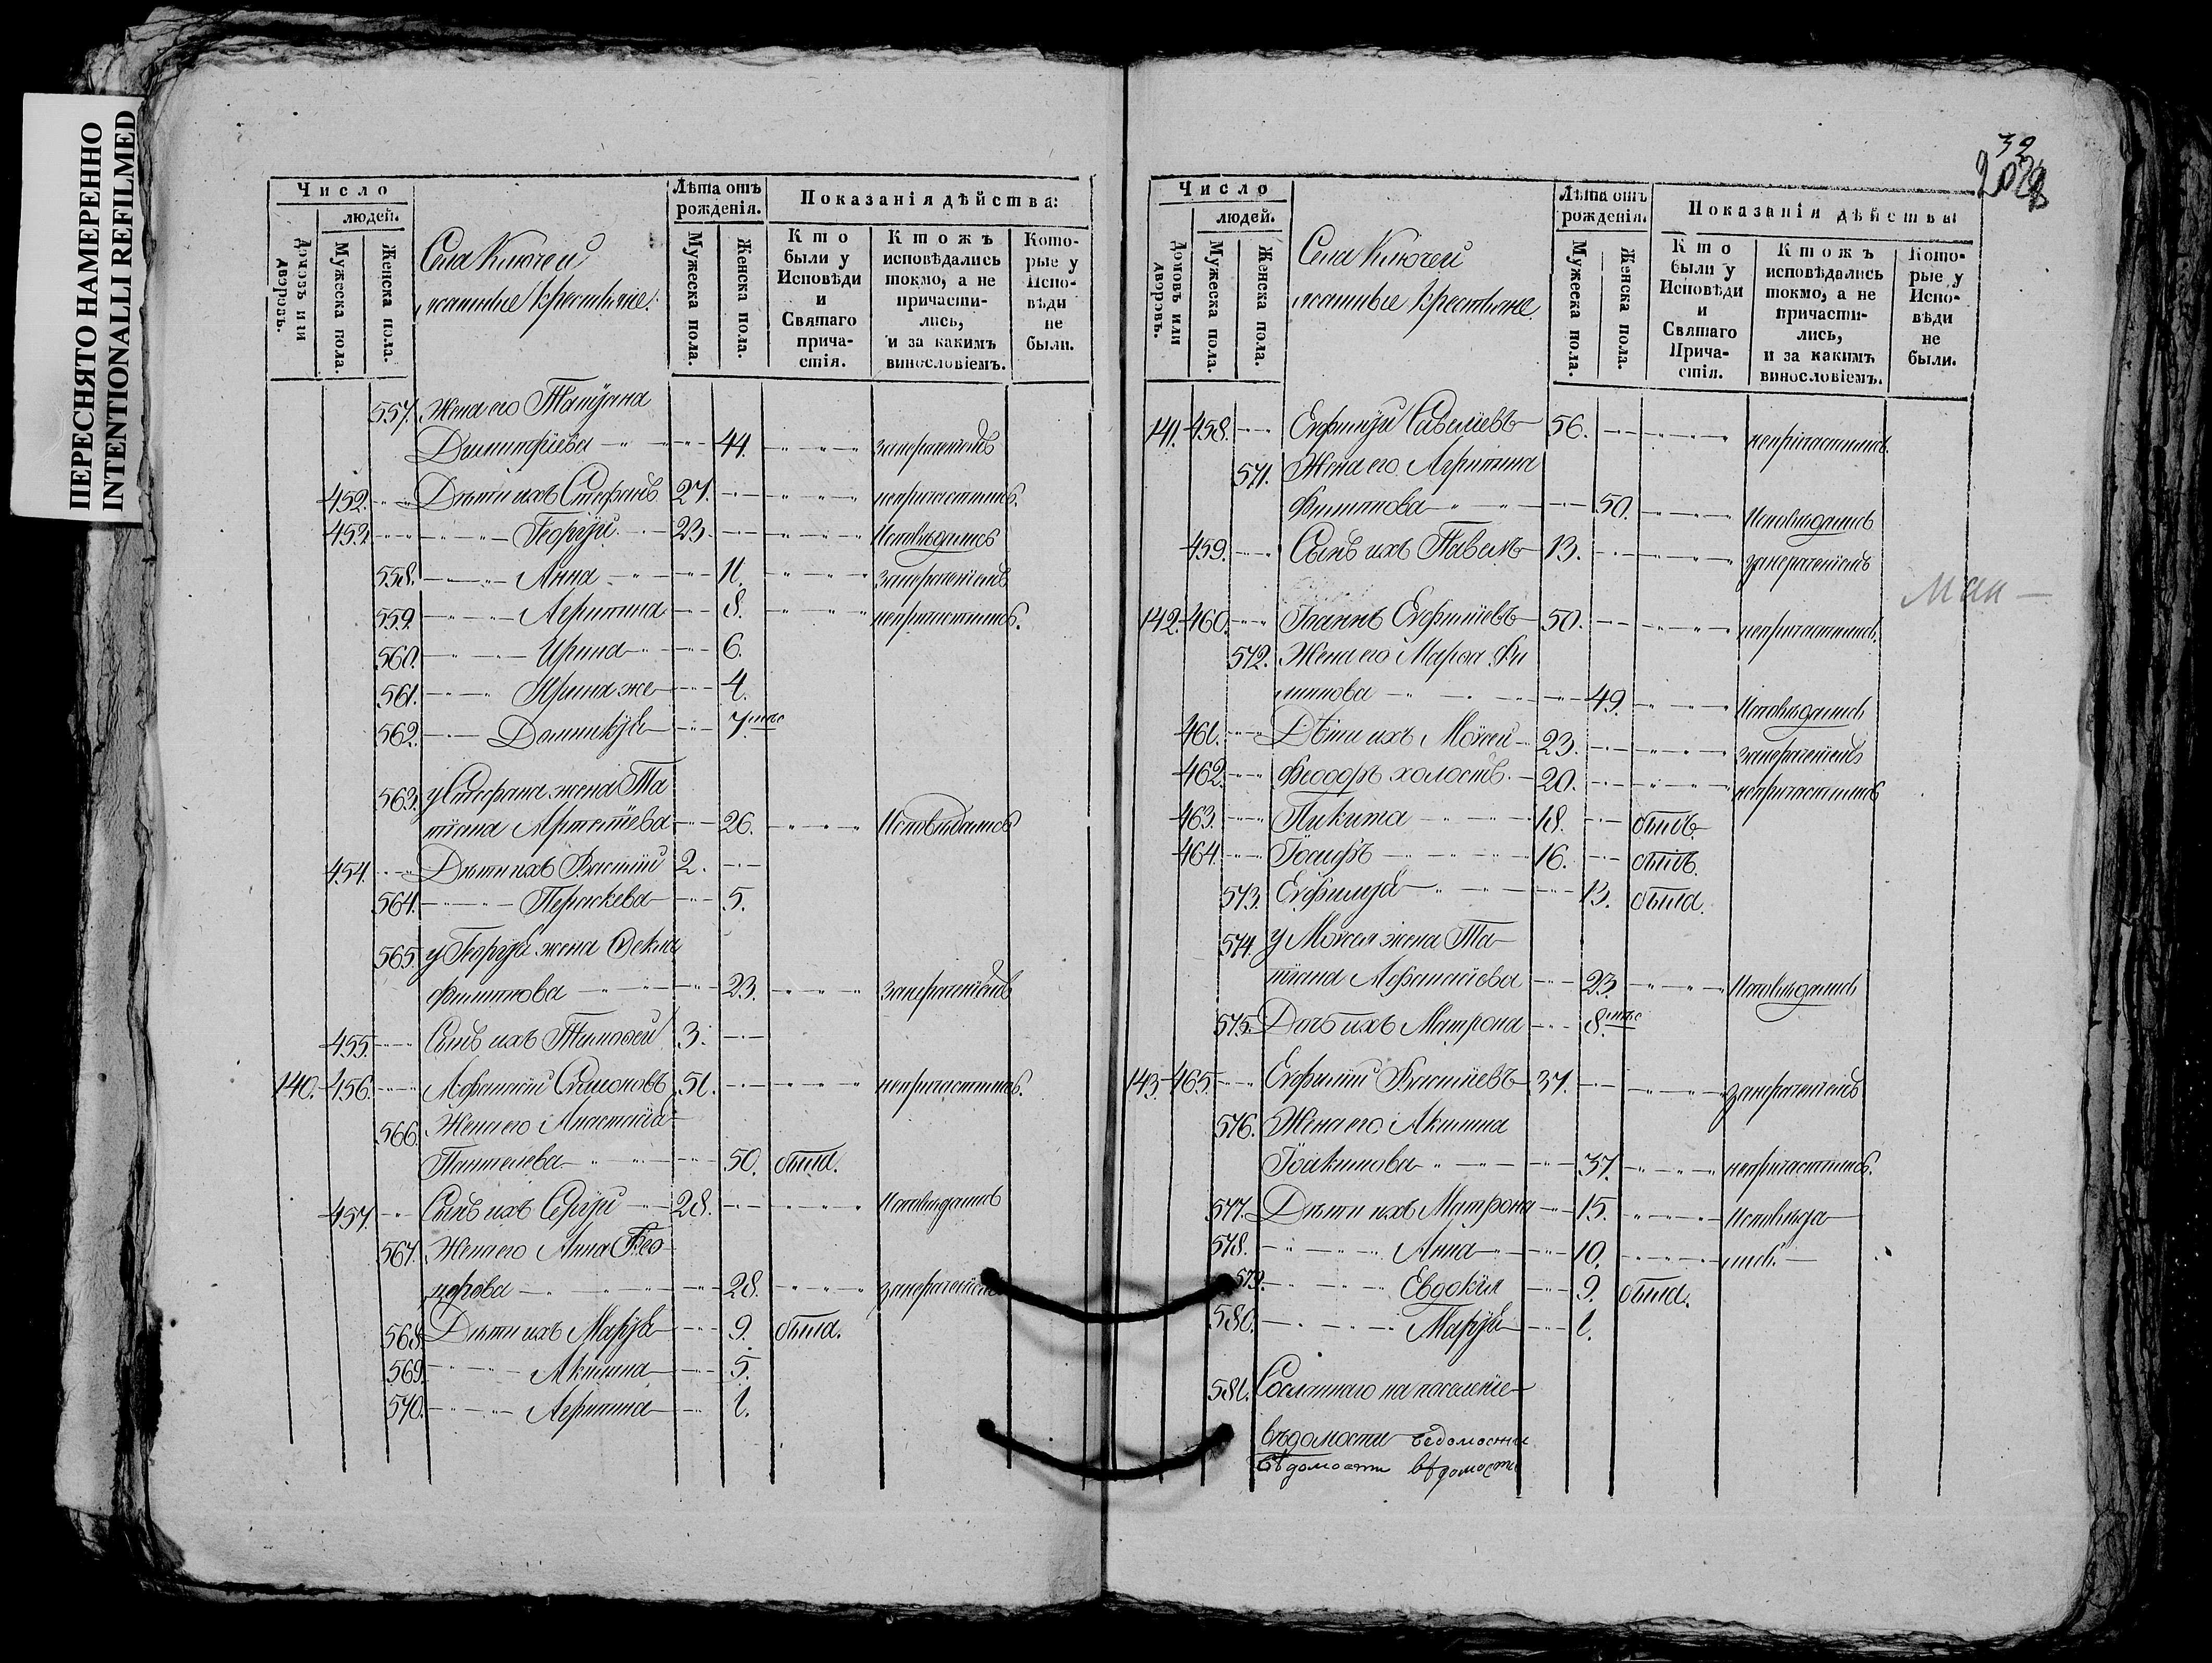 ПЕРЕСНЯТО НАМЕРЕННО
INTENTIONALLI REFILMED
Число
людей.
Домовъ или дворовъ.
Мужеска пола.
Женска пола.
Села Ключей
Крестьяне.
Лѣта отъ рожденія.
Мужеска пола.
Женска пола.
Показанія дѣйства:
Кто были у Исповѣди и Святаго причастія.
Ктожъ исповѣдались токмо, а не причастились, и за какимъ винословіемъ.
Которые у Исповѣди не были.
557. Жена его Татіана
Димитріева 44. занерачен͞іемъ
452. Дѣти ихъ Стефанъ 27. непричастились.
453. Георгій 23. Исповѣдались
558. Анна 11. занераченіемъ
559. Агрипина 8. непричастились.
560. Ирина 6.
561. Ирина же 4.
562. Домникія 7 мѣс
563. у Стефана жена Та
тіана 26. Исповѣдались
454. Дѣти ихъ Василій 2.
564. Параскева 5.
565. у Георгія жена Ѳекла
Филипова 23. занераченіемъ
455. Сынъ ихъ Тимоѳей 3.
140. 456. Аѳанасій Симоновъ 51. непричастились.
566. Жена его Анастасія
Пантелеева 50. была.
457. Сынъ ихъ Сергій 28. Исповѣдались
567. Жена его Анна Ѳео
дорова 28. занераченіемъ
568. Дѣти ихъ Марія 9. была.
569. Акилина 5.
570. Агрипина 1.
32
Число
людей.
Домовъ или дворовъ.
Мужеска пола.
Женска пола.
Села Ключей
Крестьяне.
Лѣта отъ рожденія.
Мужеска пола.
Женска пола.
Показанія дѣйства:
Кто были у Исповѣди и Святаго Причастія.
Ктожъ исповѣдались токмо, а не причастились, и за какимъ винословіемъ.
Которые у Исповѣди не были.
141. 458. Евфимій Савеліевъ 56. непричастились.
571. Жена его Агрипина
Филипова 50. Исповѣдались
459. Сынъ ихъ Павелъ 13. занераченіемъ
142. 460. Іоаннъ Евфиміевъ 50. непричастились.
572. Жена его Марѳа Фи
липова 49. Исповѣдались
461. Дѣти ихъ Моисей 23. занераченіемъ
462. Феодоръ холостъ. 20. непричастились
463. Никита 18. былъ.
464. Іосифъ 16. былъ.
573. Евфимія 13. была.
574. у Моисея жена Та-
тіана Аѳанасіева 23. Исповѣдались
575. Дочь ихъ Матрона 8 мѣс
143. 465. Евфимій Васильевъ 37. занераченіемъ
576. Жена его Акилина
Іоакимова 37. непричастились.
577. Дѣти ихъ Матрона 15. Исповѣда
578. Анна 10. лись.
579. Евдокія 9. была.
580. Марія 1.
581. Сосланнаго на поселеніе
вѣдомости ведомости
вѣдомости вѣдомости